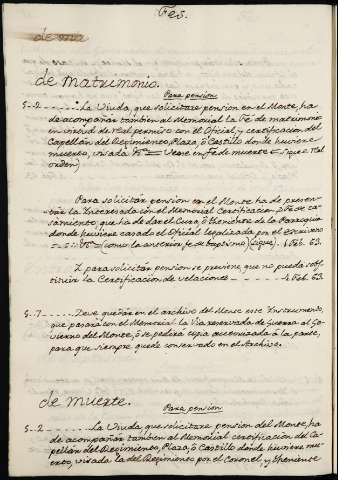 Fes.
de matrimonio.
Para pension
5-2 - - - - - La Viuda, que solicitare pension en el Monte, ha
de acompañar tambien al Memorial la Fé de matrimonio
en virtud de real permiso con el Oficial, y certificacion del
Capellan del Regimiento, Plaza, ó Castillo donde huviere
muerto, visada &c. = Vease en fe de muerte = Sigue Rl.
orden)
Para solicitar pension en el Monte ha de presen-
tar la Interesada con el Memorial Certificacion, ó Fé de ca-
samiento, que ha de dar el Cura, ó Theniente de la Parroquia
donde huviere casado el Oficial legalizada por el escrivano
(como la anterior fe de baptismo) (sigue). 1 Feb. 63.
Y para solicitar pension se previene que no pueda subs-
tituir la Certificacion de velaciones - - - - - 4 Feb. 63.
5-7 - - - - - Deve quedar en el archivo del Monte este Instrumento,
que pasará con el Memorial la Via reservada de Guerra al Go-
vierno del Monte, ó se pedirá copia autorizada á la parte,
para que siempre quede conservado en el Archivo.
de muerte.
Para pension
5-2 - - - - - La Viuda, que solicitare pension del Monte, ha
de acompañar tambien al Memorial certificacion del Ca-
pellan del Regimiento, Plaza, ó Castillo donde huviere mu-
erto, visada la del Regimiento por el Coronel, y Theniente